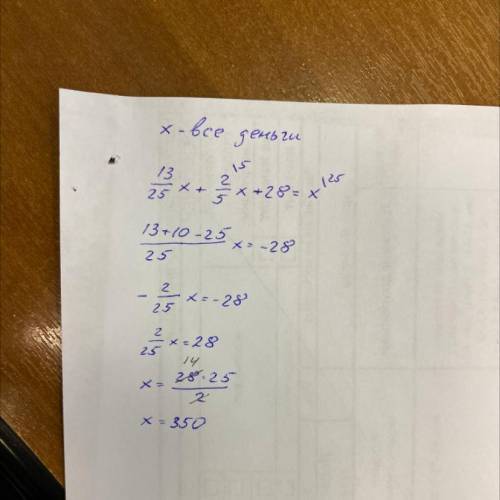 x - все деньги
13/25 x + 2/5 |5 x + 28 = x |25
13+10-25/25 x = -28
- 2/25 x = -28
2/25 x = 28
x = 28·25/2 14
x = 350